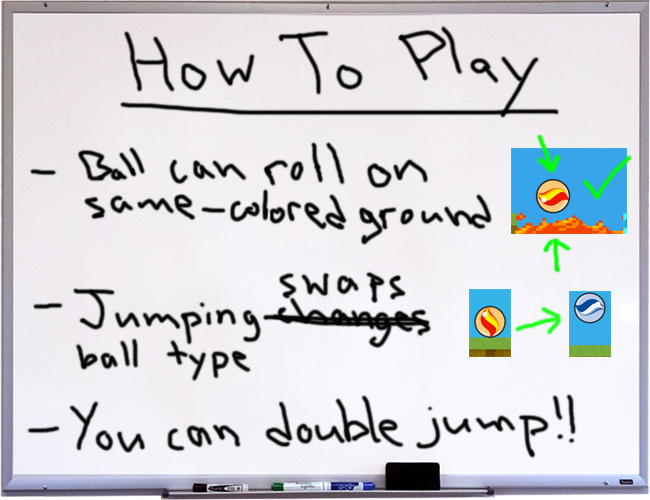 How To Play
- Ball can roll on
same-colored ground
swaps
- Jumping changes
ball type
- You can double jump!!